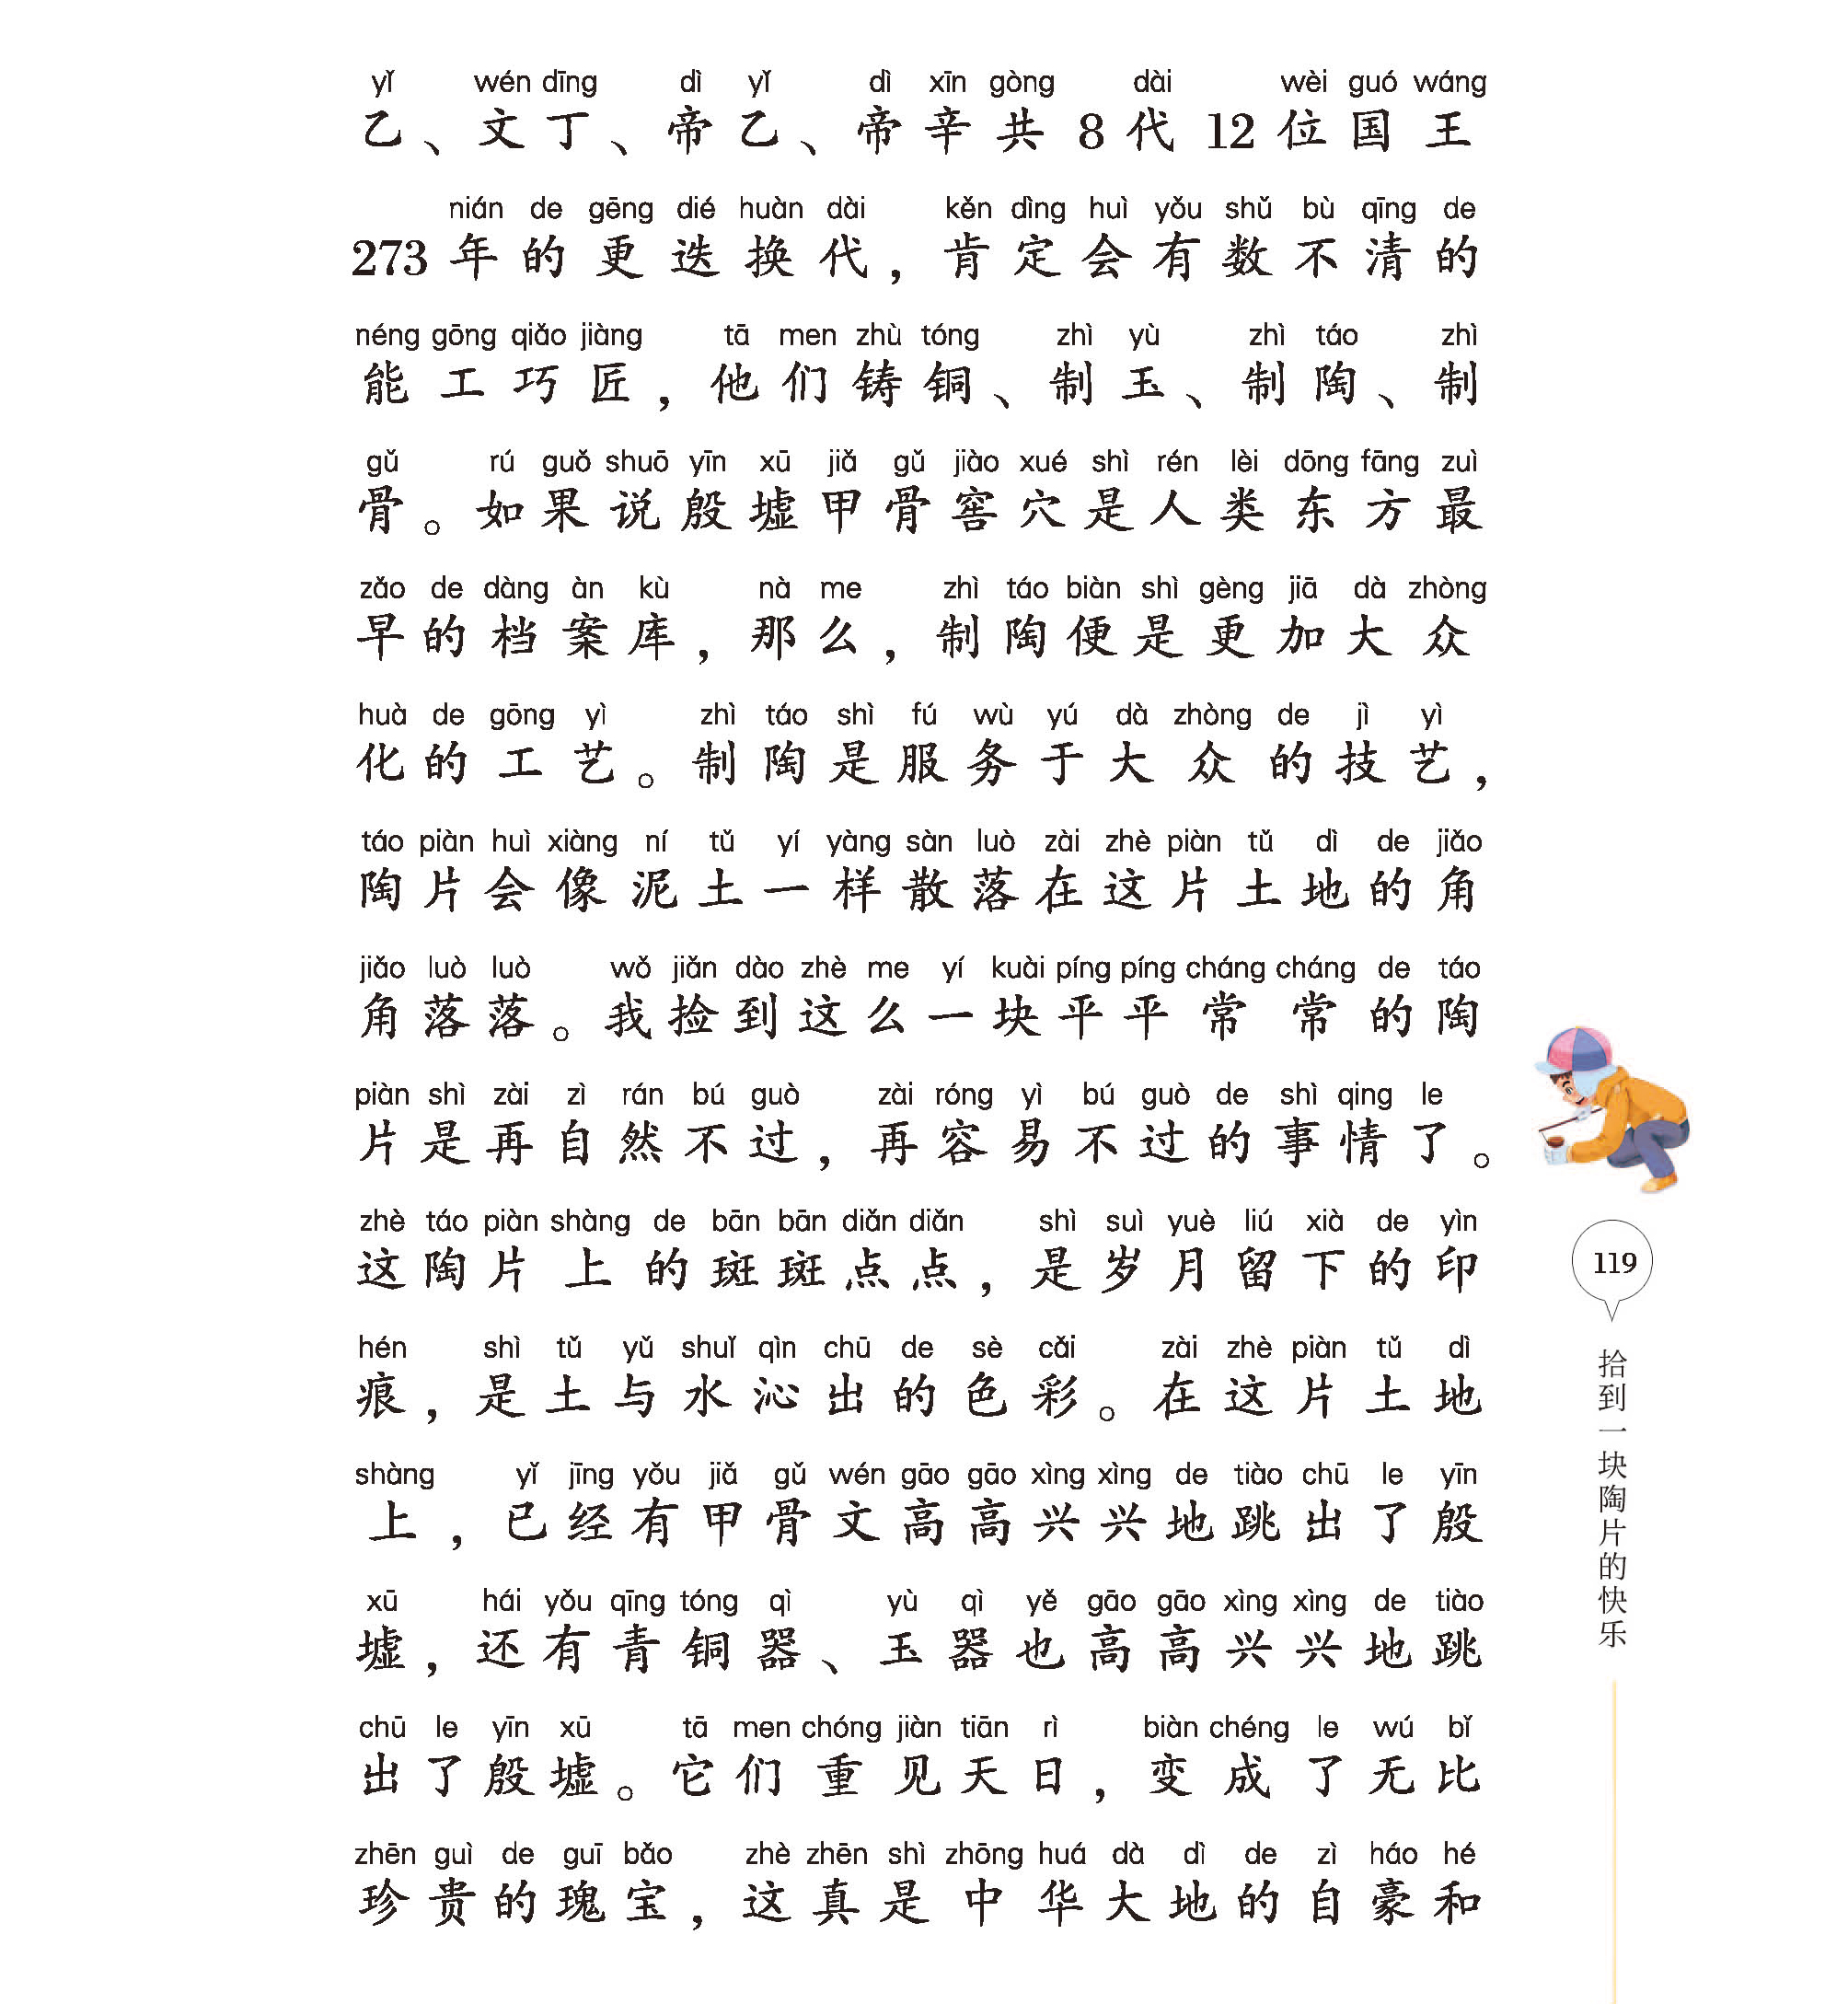 yǐ wén dīng dì yǐ dì xīn gòng dài wèi guó wáng
乙、文丁、帝乙、帝辛共8代12位国王
nián de gēng dié huàn dài kěn dìng huì yǒu shǔ bù qīng de
273年的更迭换代，肯定会有数不清的
néng gōng qiǎo jiàng tā men zhù tóng zhì yù zhì táo zhì
能工巧匠，他们铸铜、制玉、制陶、制
gǔ rú guǒ shuō yīn xū jiǎ gǔ jiào xué shì rén lèi dōng fāng zuì
骨。如果说殷墟甲骨窖穴是人类东方最
zǎo de dàng àn kù nà me zhì táo biàn shì gèng jiā dà zhòng
早的档案库，那么，制陶便是更加大众
huà de gōng yì zhì táo shì fú wù yú dà zhòng de jì yì
化的工艺。制陶是服务于大众的技艺，
táo piàn huì xiàng ní tǔ yí yàng sàn luò zài zhè piàn tǔ dì de jiǎo
陶片会像泥土一样散落在这片土地的角
jiǎo luò luò wǒ jiǎn dào zhè me yí kuài píng píng cháng cháng de táo
角落落。我捡到这么一块平平常常的陶
piàn shì zài zì rán bú guò zài róng yì bú guò de shì qing le
片是再自然不过，再容易不过的事情了。
zhè táo piàn shàng de bān bān diǎn diǎn shì suì yuè liú xià de yìn
这陶片上的斑斑点点，是岁月留下的印
hén shì tǔ yǔ shuǐ qìn chū de sè cǎi zài zhè piàn tǔ dì
痕，是土与水沁出的色彩。在这片土地
shàng yǐ jīng yǒu jiǎ gǔ wén gāo gāo xìng xìng de tiào chū le yīn
上，已经有甲骨文高高兴兴地跳出了殷
xū hái yǒu qīng tóng qì yù qì yě gāo gāo xìng xìng de tiào
墟，还有青铜器、玉器也高高兴兴地跳
chū le yīn xū tā men chóng jiàn tiān rì biàn chéng le wú bǐ
出了殷墟。它们重见天日，变成了无比
zhēn guì de guī bǎo zhè zhēn shì zhōng huá dà dì de zì háo hé
珍贵的瑰宝，这真是中华大地的自豪和
119
拾到一块陶片的快乐